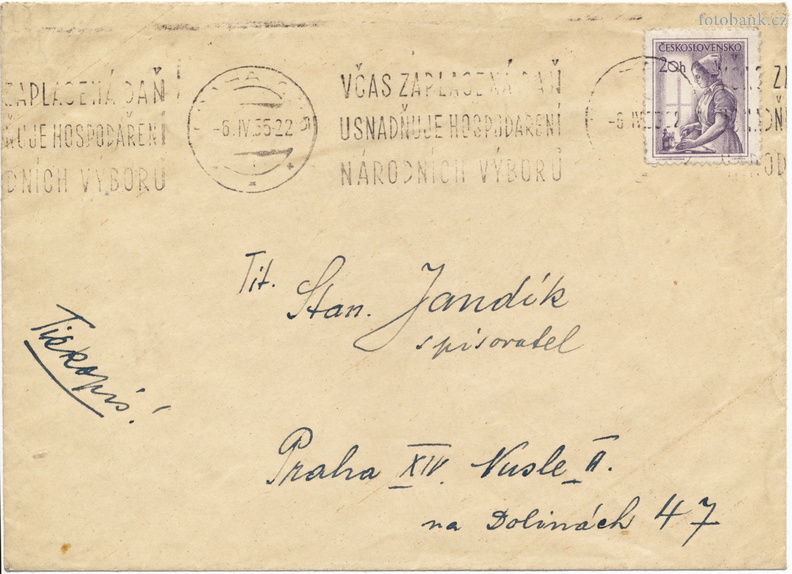 fotobank.cz
ČESKOSLOVENSKO
20h
ZAPLACENÁ DAŇ
ŇUJE HOSPODAŘENÍ
DNÍCH VÝBORŮ
-6.IV.55-22
VČAS ZAPLACENÁ DAŇ
USNADŇUJE HOSPODAŘENÍ
NÁRODNÍCH VÝBORŮ
Tit. Stan. Jandík
spisovatel
Tiskopis!
Praha XIV. Nusle II.
na Dolinách 47